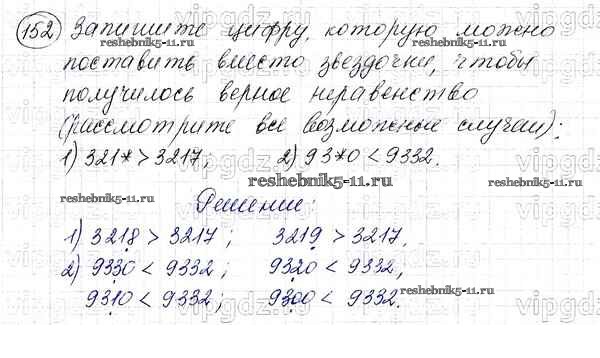 152) Запишите цифру, которую можно
reshebnik5-11.ru
поставить вместо звездочки, чтобы
получилось верное неравенство
(рассмотрите все возможные случаи):
1) 321*>3217; 2) 93*0<9332.
reshebnik5-11.ru
reshebnik5-11.ru
Решение:
1) 3218>3217; 3219>3217.
2) 9330<9332; 9320<9332,
reshebnik5-11.ru
9310<9332; 9300<9332.
vipgdz.ru